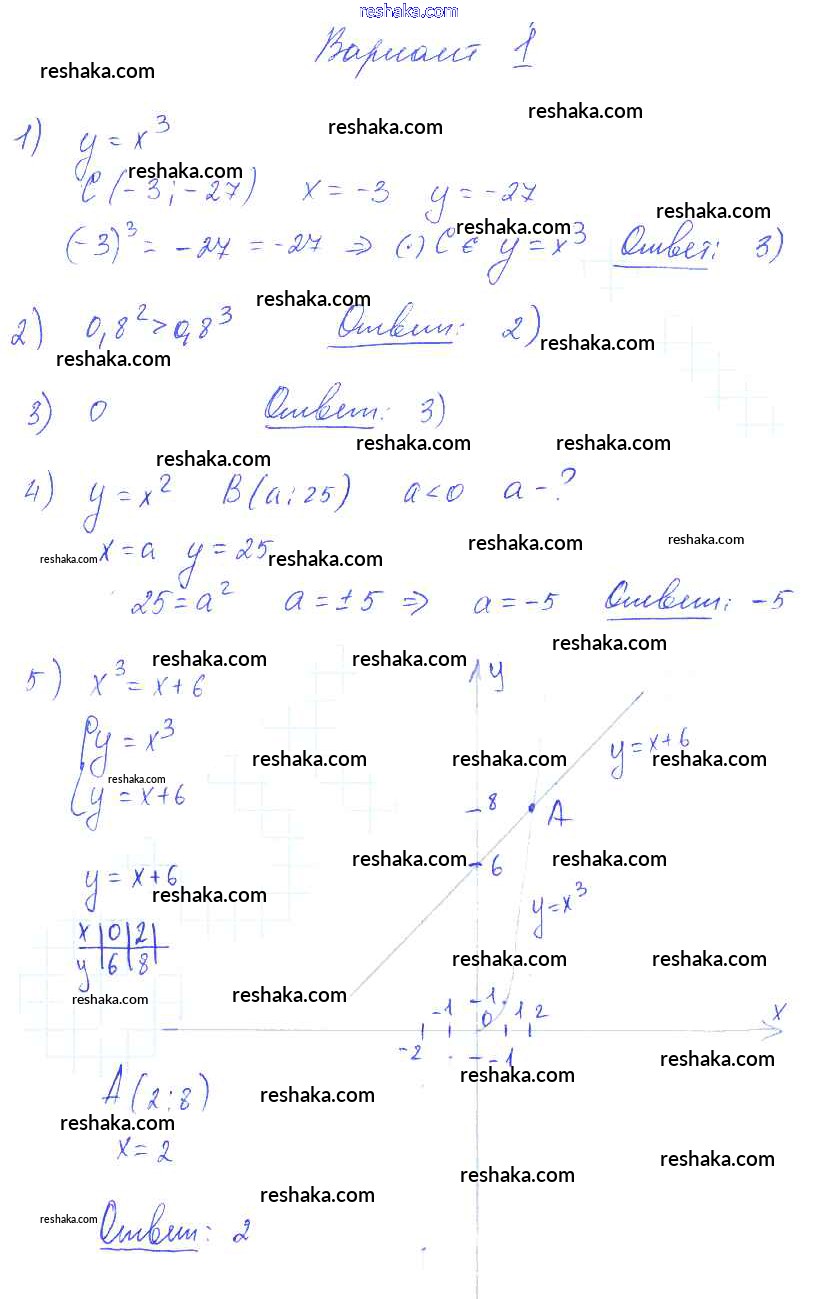 reshaka.com
Вариант 1
reshaka.com
reshaka.com
reshaka.com
1) y = x³
reshaka.com
C (-3; -27) x = -3 y = -27
reshaka.com
reshaka.com
(-3)³ = -27 = -27 ⇒ (·) C ∈ y = x³ Ответ: 3)
reshaka.com
2) 0,8² > 0,8³ Ответ: 2)
reshaka.com
reshaka.com
3) 0 Ответ: 3)
reshaka.com
reshaka.com
reshaka.com
4) y = x² B (a; 25) a < 0 a - ?
reshaka.com
reshaka.com
reshaka.com
x = a y = 25
reshaka.com
25 = a² a = ±5 ⇒ a = -5 Ответ: -5
reshaka.com
reshaka.com
reshaka.com
5) x³ = x + 6
y
{ y = x³
y = x + 6
reshaka.com
reshaka.com
reshaka.com
reshaka.com
y = x + 6
8
A
reshaka.com
reshaka.com
6
y = x + 6
reshaka.com
y = x³
x | 0 | 2 |
y | 6 | 8 |
reshaka.com
reshaka.com
reshaka.com
reshaka.com
-1 1 0 1 2 x
-2 -1
reshaka.com
reshaka.com
A (2; 8)
reshaka.com
reshaka.com
x = 2
reshaka.com
reshaka.com
reshaka.com
reshaka.com
Ответ: 2